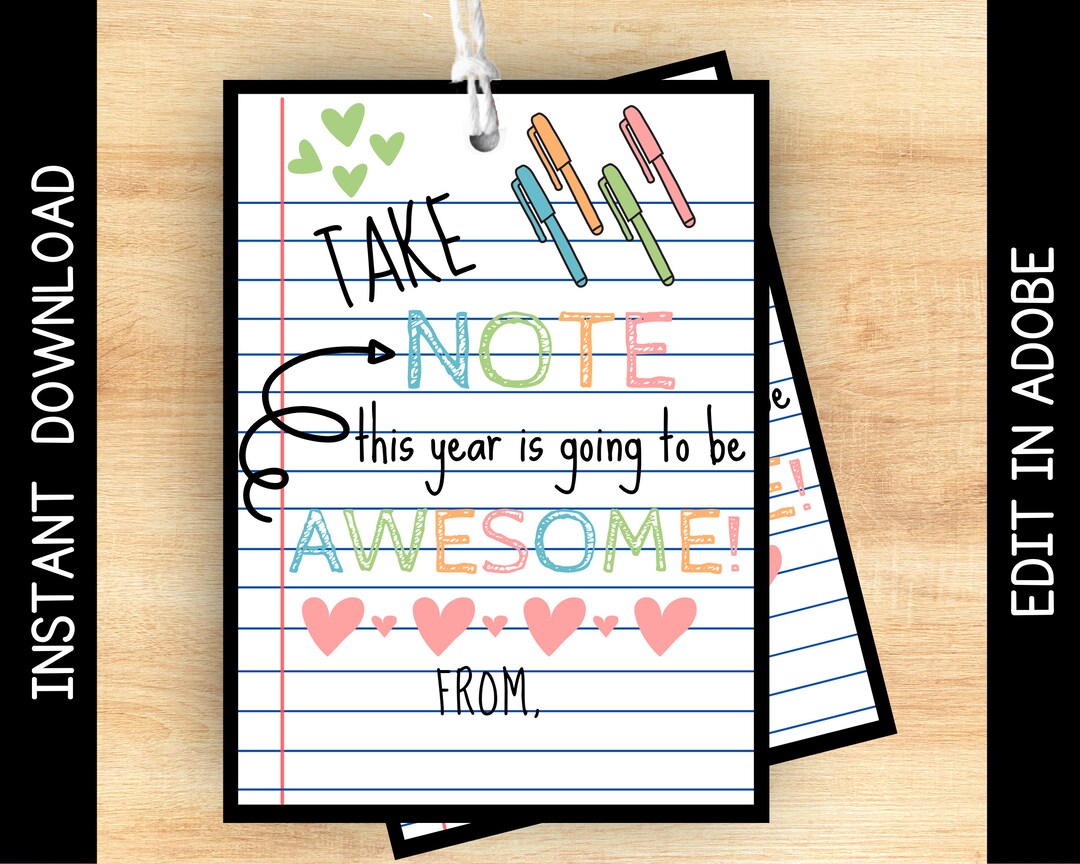 INSTANT DOWNLOAD
TAKE
NOTE
this year is going to be
AWESOME!
FROM,
be
E!
EDIT IN ADOBE